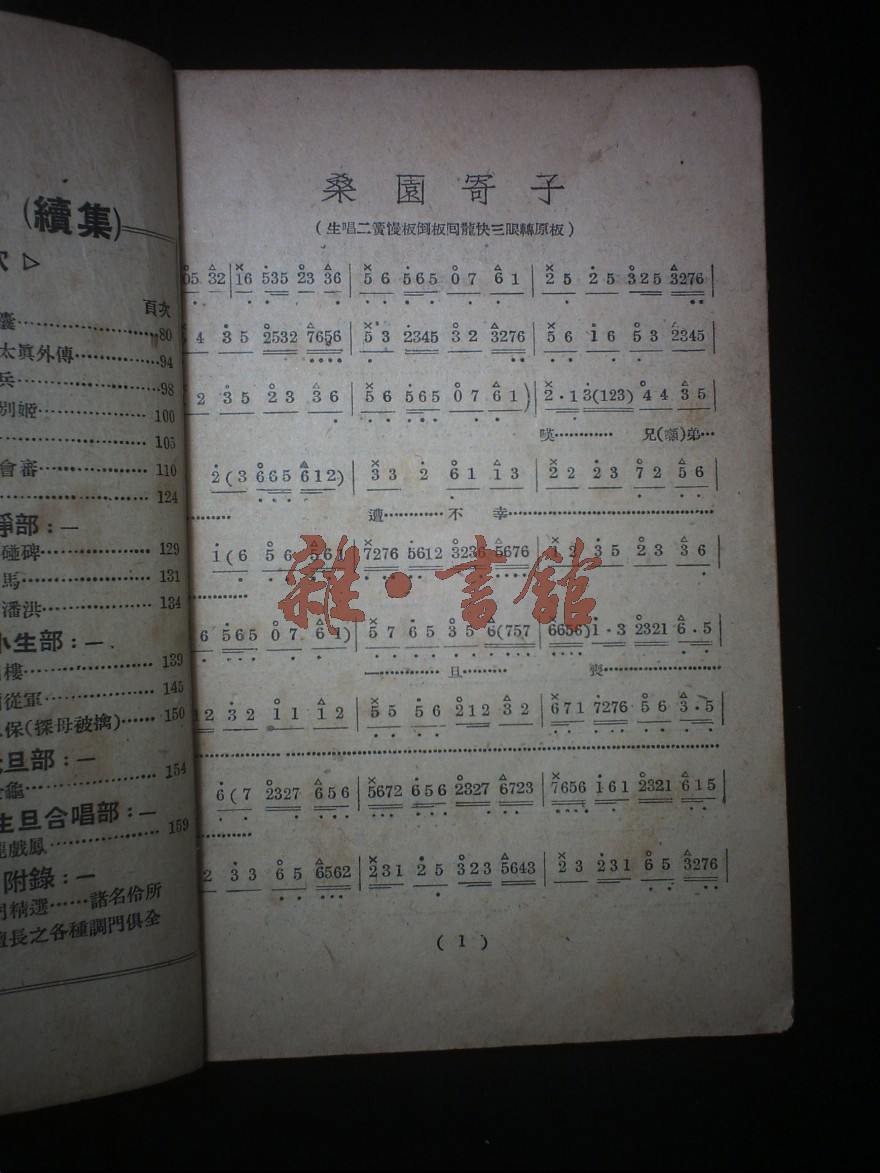 (續集)
頁次
囊··················80
太眞外傳············94
兵··················98
別姬················100
····················105
會審················110
····················124
淨部：—
碰碑················129
馬··················131
潘洪················134
小生部：—
樓··················139
從軍················145
保(探母被擒)······150
旦部：—
龜··················154
生旦合唱部：—
戲鳳················159
附錄：—
精選······諸名伶所
長之各種調門俱全
桑園寄子
(生唱二簧慢板倒板回龍快三眼轉原板)
05 32 | 16 535 23 36 | 56 565 07 61 | 25 25 325 3276 |
4 35 2532 7656 | 53 2345 32 3276 | 56 16 53 2345
2 35 23 36 | 56 565 07 61) | 2·1 3(123) 44 35 |
嘆············ 兄(囑)弟···
2(3 665 612) | 33 2 61 13 | 22 23 72 56 |
······ 遭············不 幸························
1(6 56 561 | 7276 5612 3236 5676 | 12 35 23 36 |
······
6 565 07 61) | 57 65 35 6(757 | 6656)1·3 2321 6·5 |
一·········且········· 喪························
12 32 11 12 | 55 56 212 32 | 671 7276 56 3·5 |
························
6(7 2327 656 | 5672 656 2327 6723 | 7656 161 2321 615 |
······
2 33 65 6562 | 231 25 323 5643 | 23 231 65 3276 |
(1)
雜·書館